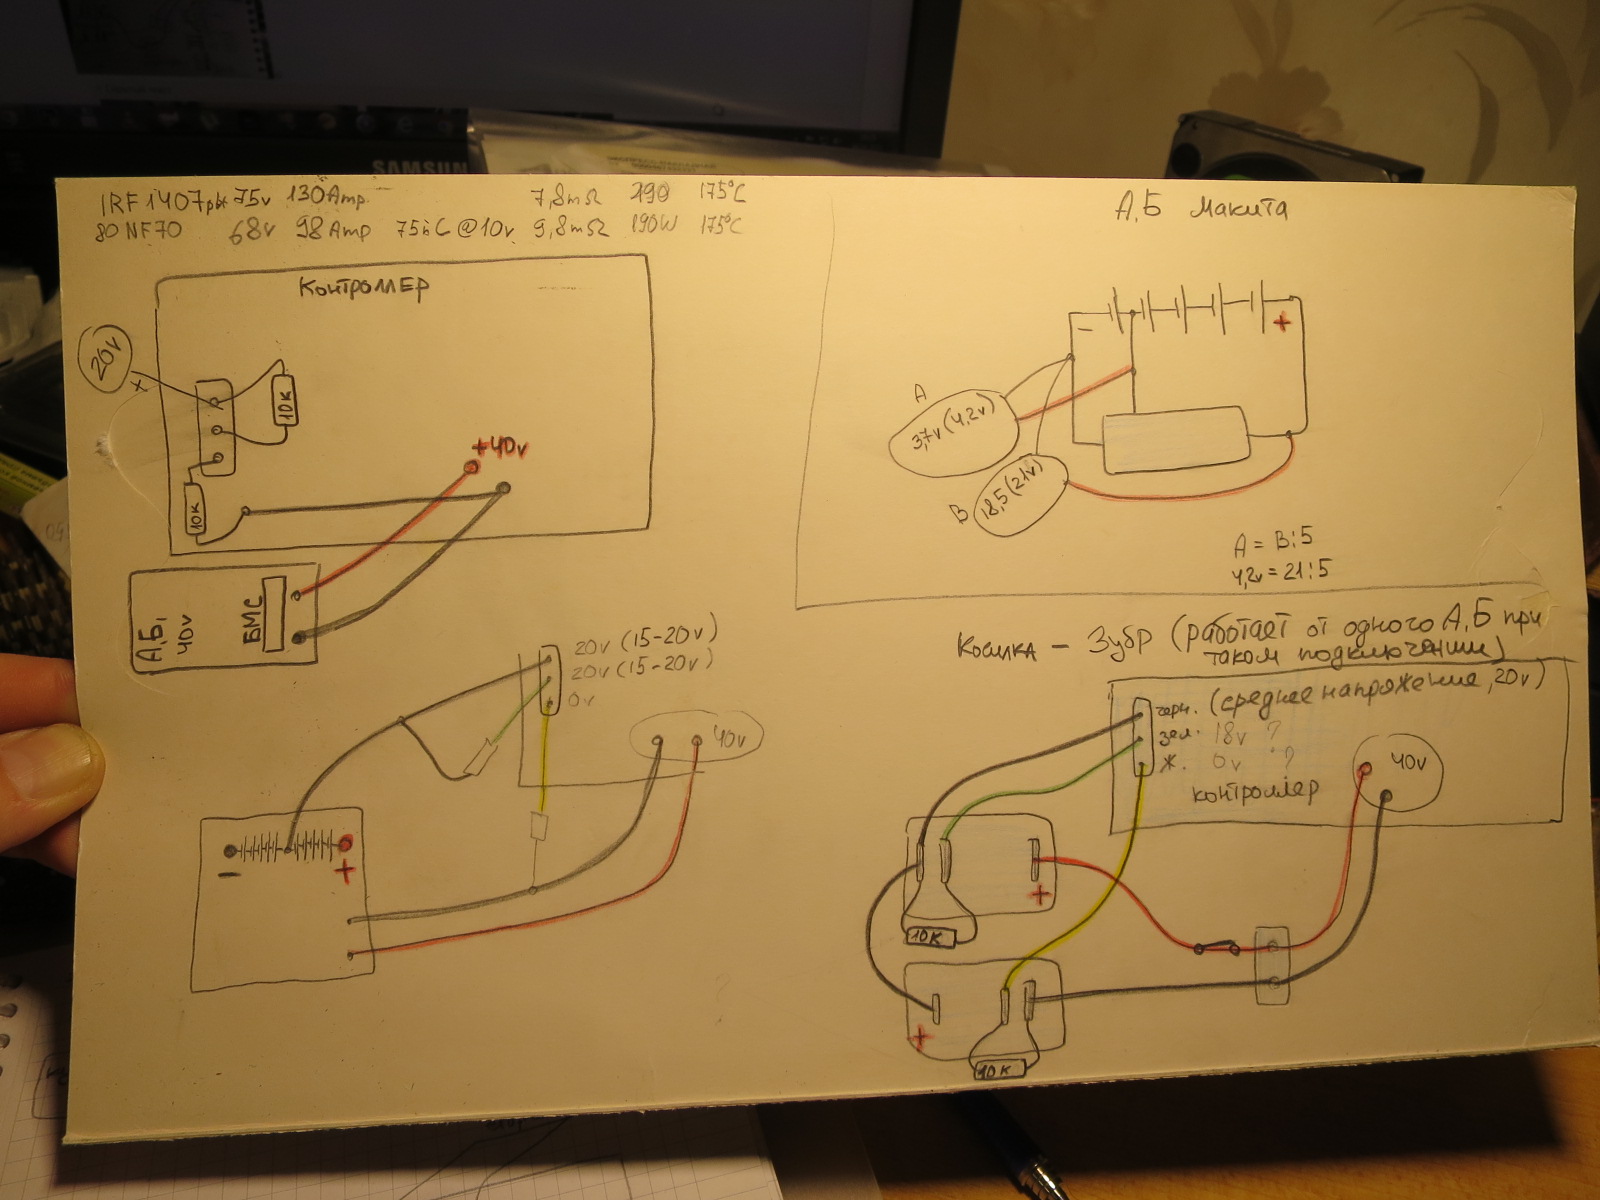 SAMSUN
IRF1407pbf 75v 130Amp 7,8mΩ 190 175°C
80NF70 68v 98Amp 75nC@10v 9,8mΩ 190W 175°C
Контроллер
20v
+
10к
10к
+40v
А,Б,
40v
БМС
20v (15-20v)
20v (15-20v)
0v
40v
-
+
А,Б Макита
-
+
A
3,7v (4,2v)
B
18,5 (21v)
A = B:5
4,2v = 21:5
Косилка - Зубр (работает от одного А,Б при
таком подключении)
черн. (среднее напряжение, 20v)
зел. 18v ?
ж. 0v ?
контроллер
40v
+
10к
+
10к